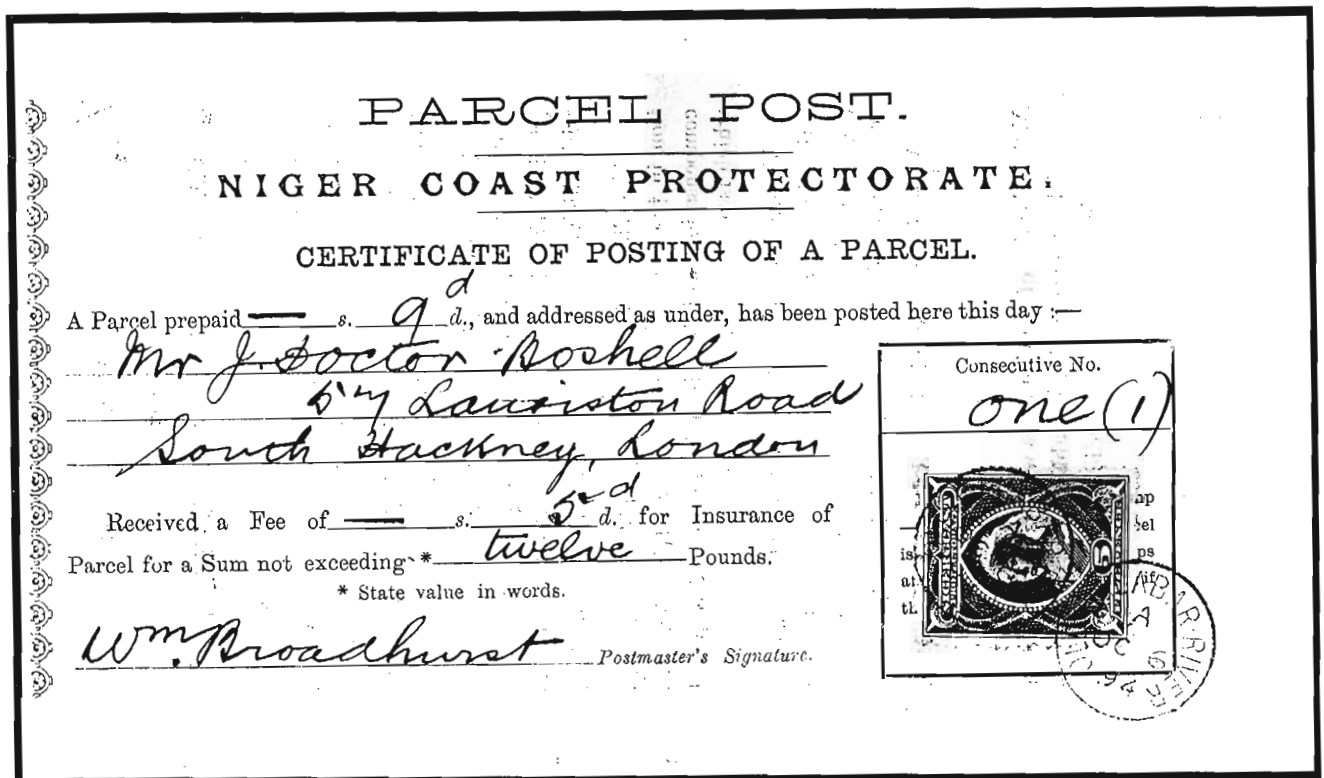 PARCEL POST.
NIGER COAST PROTECTORATE.
CERTIFICATE OF POSTING OF A PARCEL.
A Parcel prepaid — s. 9d d., and addressed as under, has been posted here this day :—
Mr J. Doctor Boshell
57 Lauriston Road
South Hackney, London
Consecutive No.
one (1)
Received a Fee of — s. 5d d. for Insurance of
Parcel for a Sum not exceeding * twelve Pounds.
* State value in words.
Wm. Broadhurst Postmaster's Signature.
NIGER COAST
ABAR RIVER
OC
94